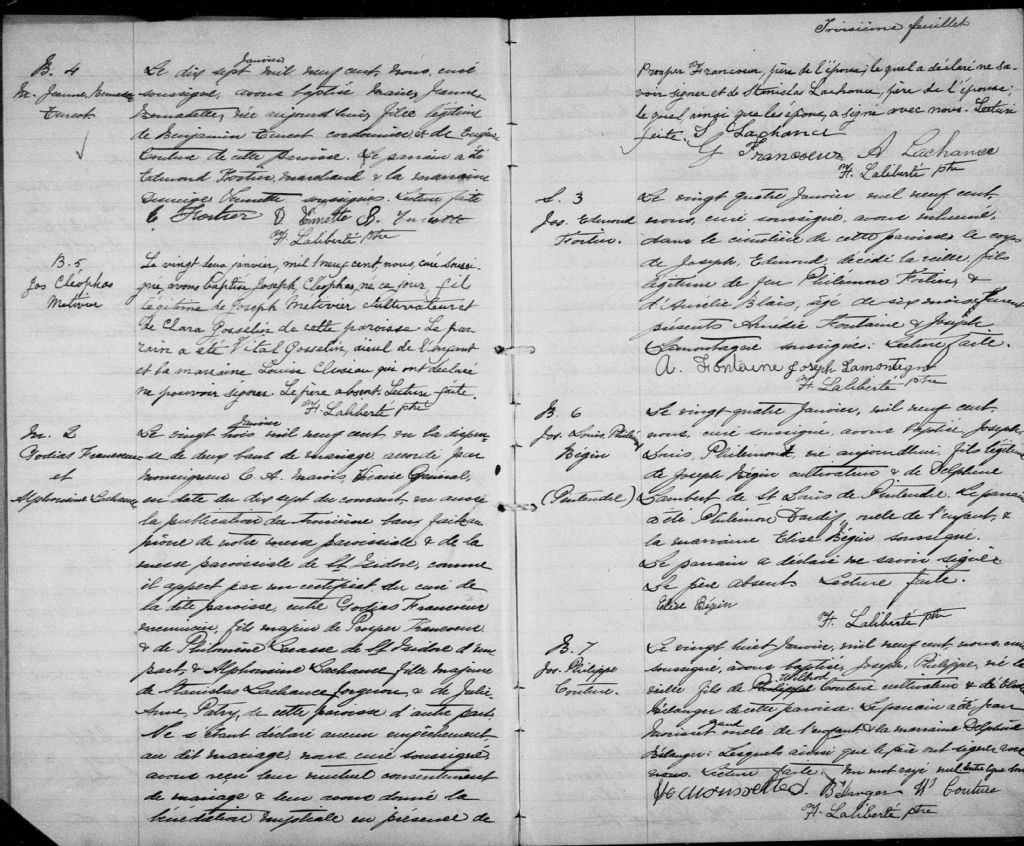 B. 4
M. Jeanne
Turcot
Le dix sept Janvier mil neuf cent, nous, curé
soussigné, avons baptisé Marie, Jeanne
née aujourd'hui, fille légitime
de Benjamin Turcot cordonnier, et de
Couture de cette paroisse. Le parrain a été
Edmond Fortier, marchand & la marraine
soussignés. Lecture faite
E. Fortier D
F. Laliberté ptre
B. 5
Jos Cléophas
Métivier
Le vingt deux janvier, mil neuf cent, nous, curé soussi-
gné, avons baptisé Joseph Cléophas, né ce jour, fils
légitime de Joseph Métivier cultivateur et
de Clara Gosselin de cette paroisse. Le par-
rain a été Vital Gosselin, aieul de l'enfant
et la marraine Louise qui ont déclaré
ne pouvoir signer. Le père absent. Lecture faite.
F. Laliberté ptre
M. 2
Godias Francoeur
et
Alphonsine Lachance
Le vingt trois Janvier mil neuf cent, vu la dispen-
se de deux bans de mariage, accordé par
Monseigneur C. A. Marois, Vicaire Général,
en date du dix sept du courant, vu aussi
la publication du troisième ban, faite au
prône de notre messe paroissiale & de la
messe paroissiale de St Isidore, comme
il appert par un certificat du curé de
la dite paroisse, entre Godias Francoeur
menuisier, fils majeur de Prosper Francoeur
& de Philomène de St Isidore d'une
part, & Alphonsine Lachance fille majeure
de Stanislas Lachance forgeron, & de Julie
Anne, Patry, de cette paroisse d'autre part,
Ne s'étant déclaré aucun empêchement
au dit mariage, nous curé soussigné
avons reçu leur mutuel consentement
de mariage & leur avons donné la
bénédiction nuptiale en présence de
Troisième feuillet
Prosper Francoeur, père de l'époux; le quel a déclaré ne sa-
voir signer et de Stanislas Lachance, père de l'épouse;
le quel ainsi que les époux, a signé avec nous. Lecture
faite. S Lachance
G Francoeur A Lachance
F. Laliberté ptre
S. 3
Jos. Edmond
Fortin.
Le vingt quatre Janvier mil neuf cent,
nous, curé soussigné, avons inhumé,
dans le cimetière de cette paroisse le corps
de Joseph, Edmond, décédé la veille, fils
légitime de feu Philémon Fortin, &
d'Amélie Blais, agé de six mois. Furent
présents Amédée Fontaine & Joseph
Lamontagne soussignés: Lecture faite.
A. Fontaine Joseph Lamontagne
F. Laliberté ptre
B. 6
Jos. Louis
Bégin
(Pintendre)
Le vingt quatre Janvier, mil neuf cent
nous, curé soussigné, avons baptisé Joseph,
Louis, Philémond, né aujourdhui, fils légitime
de Joseph Bégin cultivateur & de Delphine
Lambert de St Louis de Pintendre. Le parrain
a été Philémon Tardif, oncle de l'enfant, &
la marraine Elise Bégin soussigné.
Le parrain a déclaré ne savoir signer
Le père absent. Lecture faite.
Elise Bégin
F. Laliberté ptre
B. 7
Jos. Philippe
Couture.
Le vingt huit Janvier, mil neuf cent, nous, curé
soussigné, avons baptisé, Joseph, Philippe, né la
veille fils de Philippe Wilbrod Couture cultivateur & de
Bélanger de cette paroisse. Le parrain a été Jean
oncle de l'enfant & la marraine Delphine
Bélanger: Lesquels ainsi que le père ont signé avec
nous. Lecture faite. Un mot rayé nul
D. Bélanger W Couture
F. Laliberté ptre